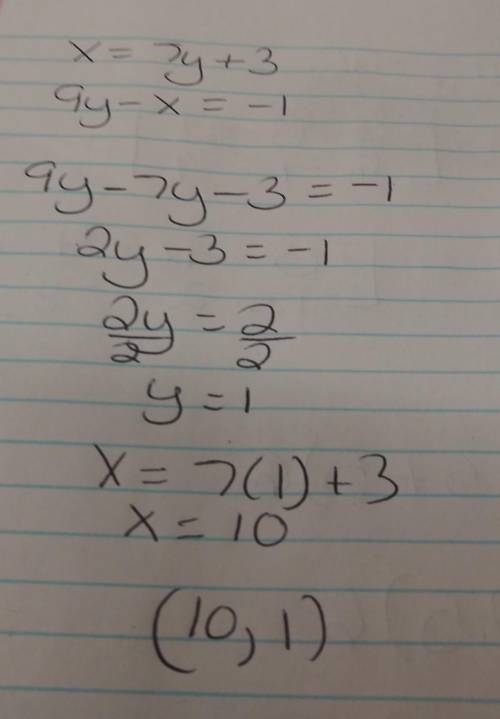 x = 7y + 3
9y - x = -1
9y - 7y - 3 = -1
2y - 3 = -1
2y/2 = 2/2
y = 1
x = 7(1) + 3
x = 10
(10, 1)